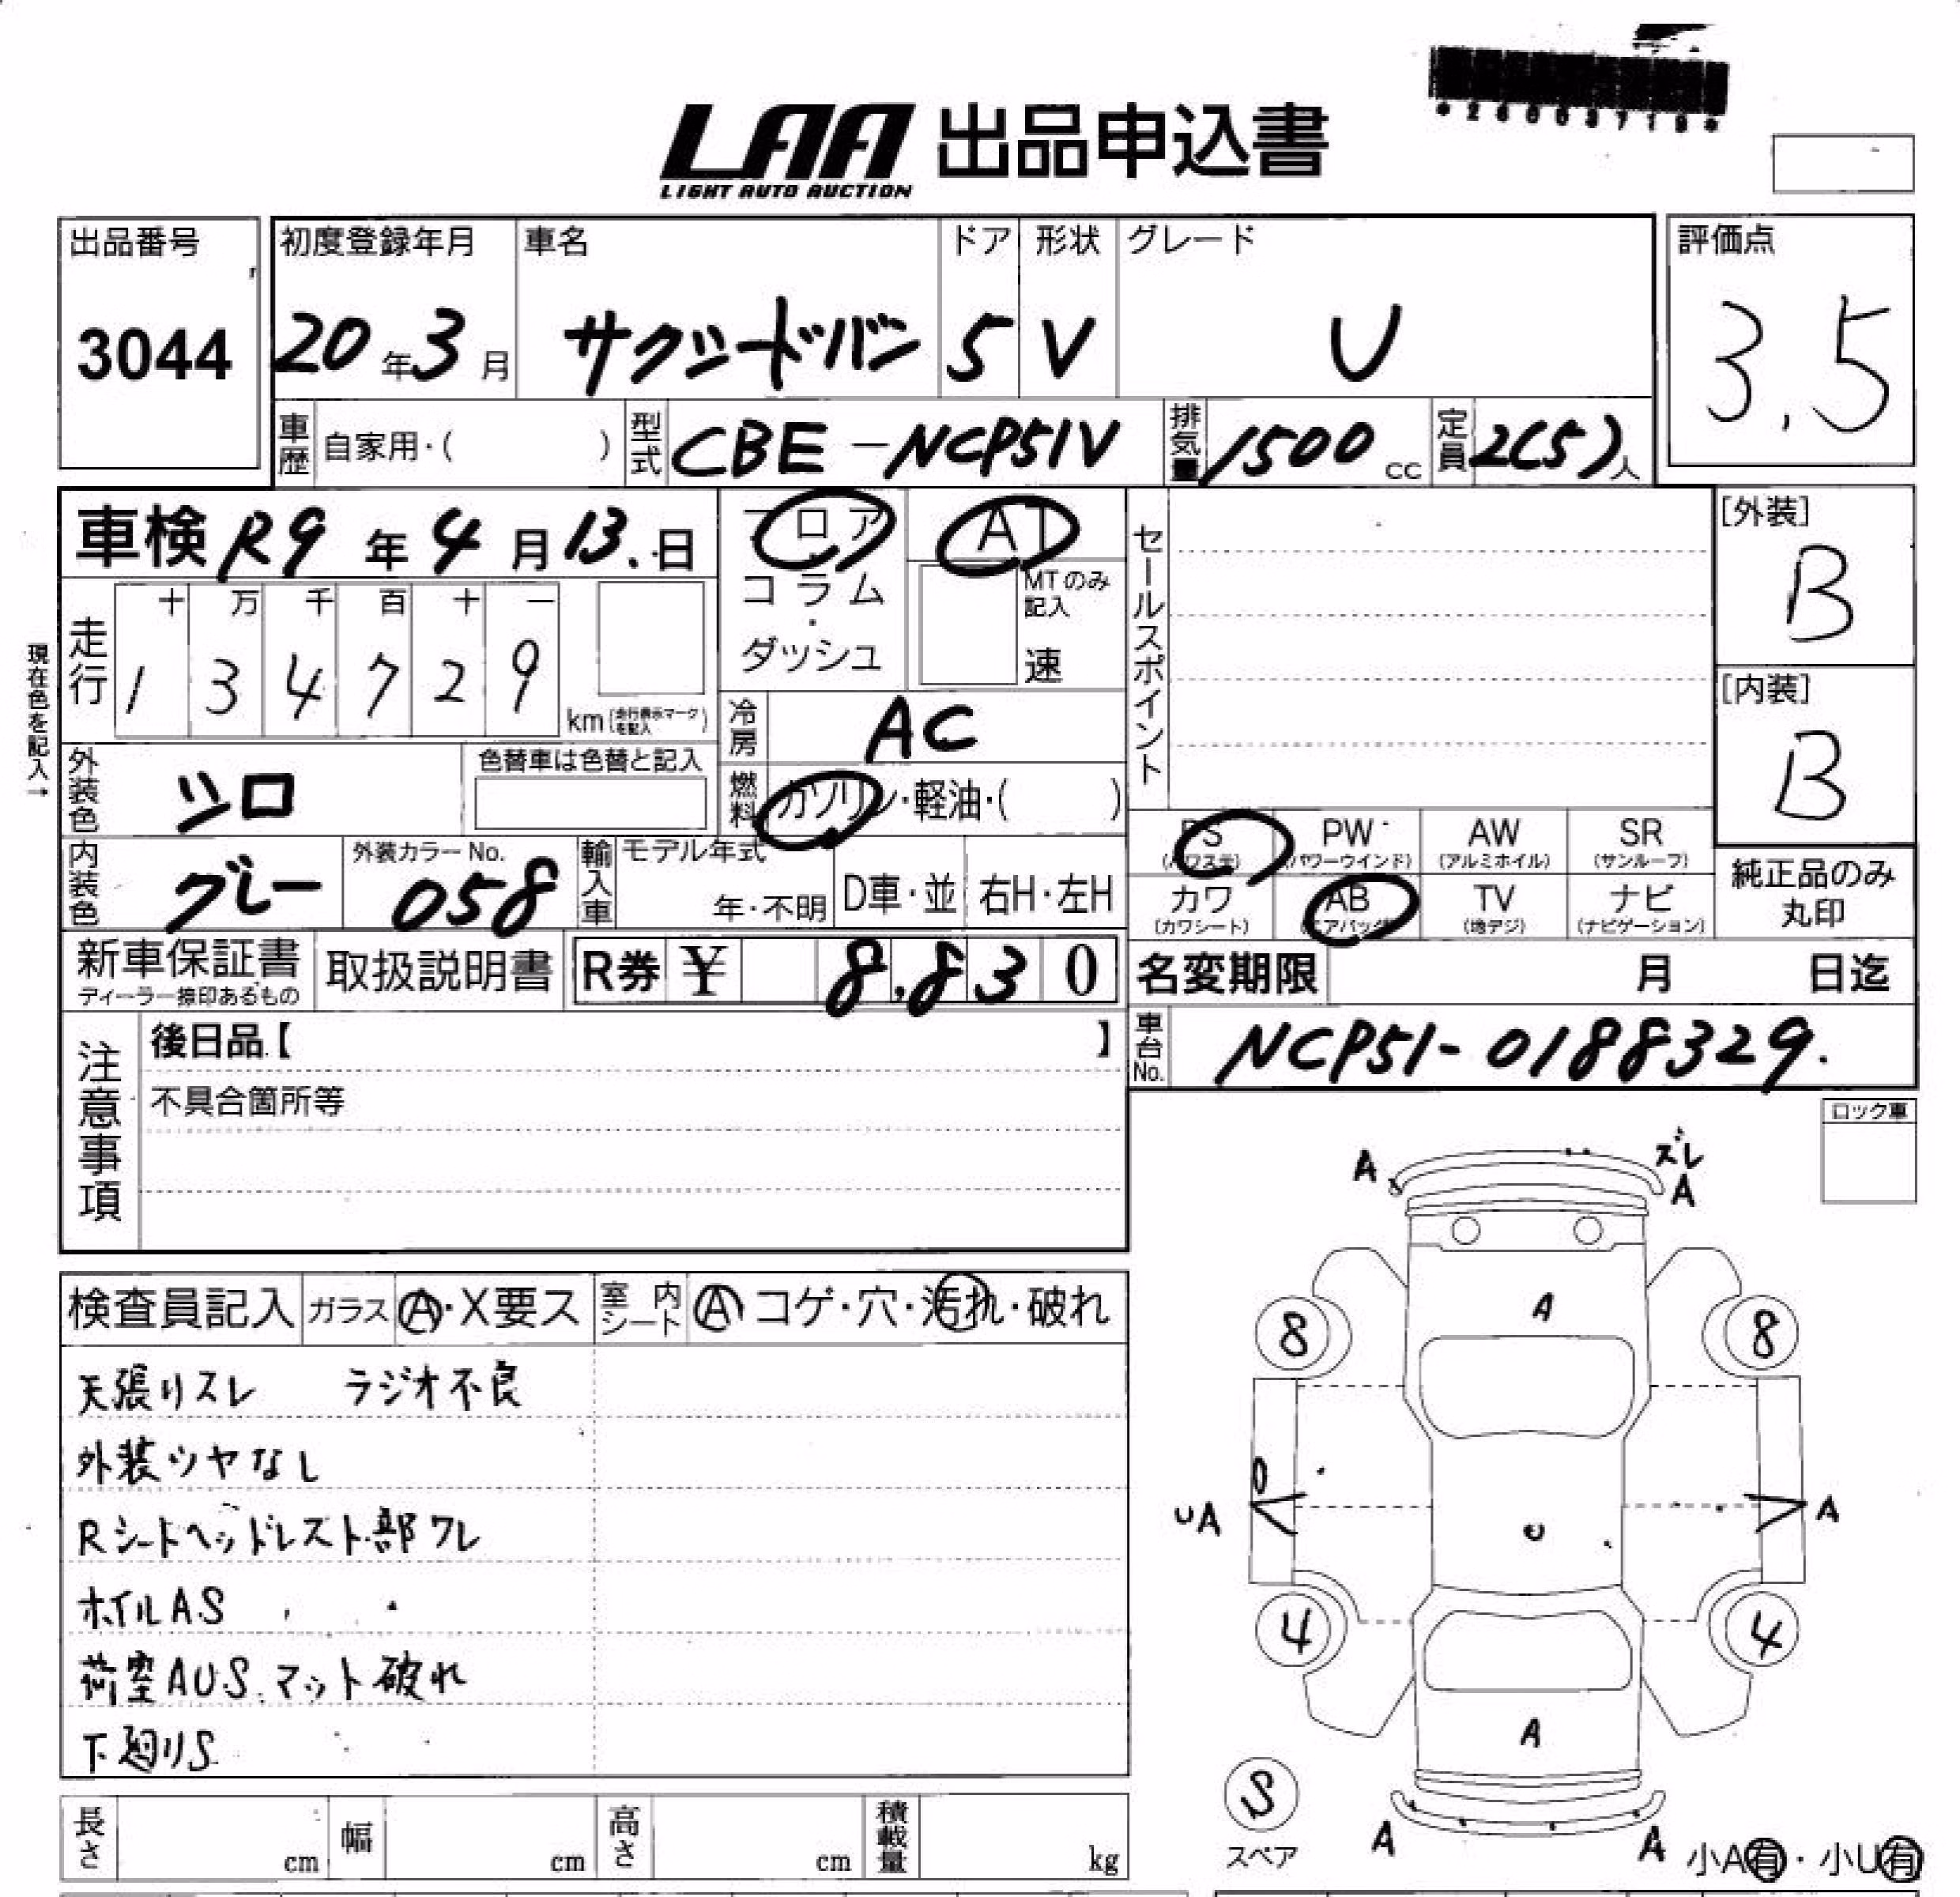 *26003719*
LAA 出品申込書
LIGHT AUTO AUCTION
出品番号
3044
初度登録年月
20年3月
車名
サクシードバン
ドア
5
形状
V
グレード
U
評価点
3.5
車歴 自家用・( )
型式 CBE-NCP51V
排気量 1500cc
定員 2(5)人
車検 R9年4月13.日
フロア
コラム
・
ダッシュ
AT
MTのみ
記入
速
セールスポイント
[外装]
B
[内装]
B
現在色を記入→
走行
十 万 千 百 十 一
1 3 4 7 2 9
km(走行表示マークを記入)
冷房 AC
外装色 シロ
色替車は色替と記入
燃料 ガソリン・軽油・( )
内装色 グレー
外装カラーNo.
058
輸入車
モデル年式
年・不明
D車・並
右H・左H
PS
(パワステ)
PW
(パワーウインド)
AW
(アルミホイル)
SR
(サンルーフ)
カワ
(カワシート)
AB
(エアバッグ)
TV
(地デジ)
ナビ
(ナビゲーション)
純正品のみ
丸印
新車保証書
ディーラー捺印あるもの
取扱説明書
R券 ¥ 8,830
名変期限 月 日迄
注意事項
後日品【 】
不具合箇所等
車台No. NCP51-0188329.
ロック車
検査員記入
ガラス A・X要ス
室内シート A コゲ・穴・汚れ・破れ
天張りスレ ラジオ不良
外装ツヤなし
Rシートヘッドレスト部ワレ
ホイルAS
荷室AUS.マット破れ
下廻りS
A ズレ
A
A
8 8
UA U A
4 4
A
S
スペア
A A
小A有・小U有
長さ cm
幅 cm
高さ cm
積載量 kg